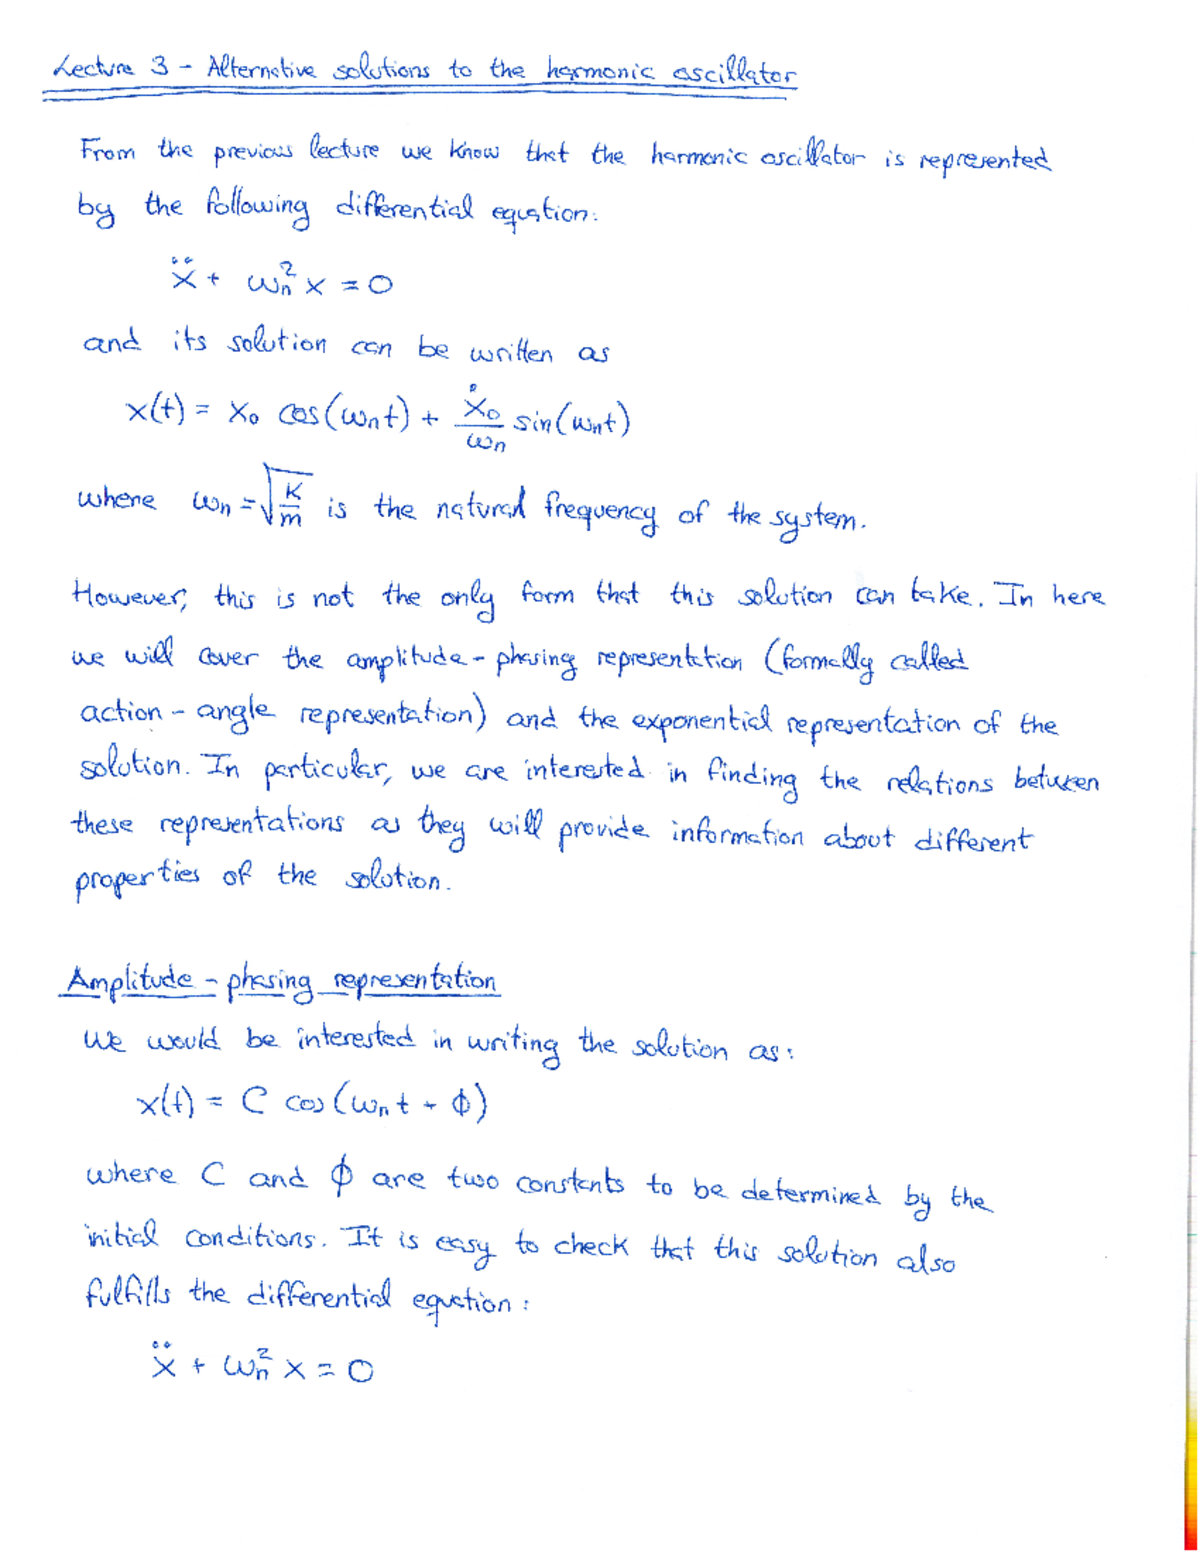 Lecture 3 - Alternative solutions to the harmonic oscillator
From the previous lecture we know that the harmonic oscillator is represented
by the following differential equation:
ẍ + ωn² x = 0
and its solution can be written as
x(t) = x₀ cos(ωn t) + ẋ₀/ωn sin(ωn t)
where ωn = √(K/m) is the natural frequency of the system.
However, this is not the only form that this solution can take. In here
we will cover the amplitude - phasing representation (formally called
action - angle representation) and the exponential representation of the
solution. In particular, we are interested in finding the relations between
these representations as they will provide information about different
properties of the solution.
Amplitude - phasing representation
We would be interested in writing the solution as:
x(t) = C cos(ωn t - ϕ)
where C and ϕ are two constants to be determined by the
initial conditions. It is easy to check that this solution also
fulfills the differential equation:
ẍ + ωn² x = 0